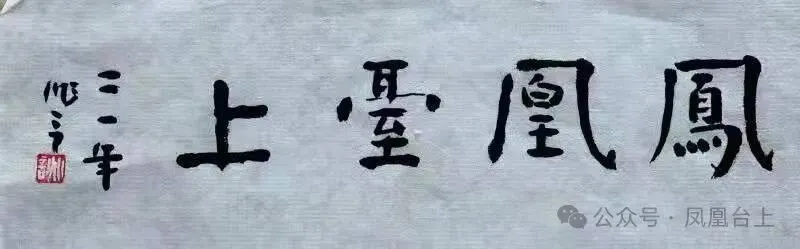 鳳凰臺上
二一年
公众号·凤凰台上